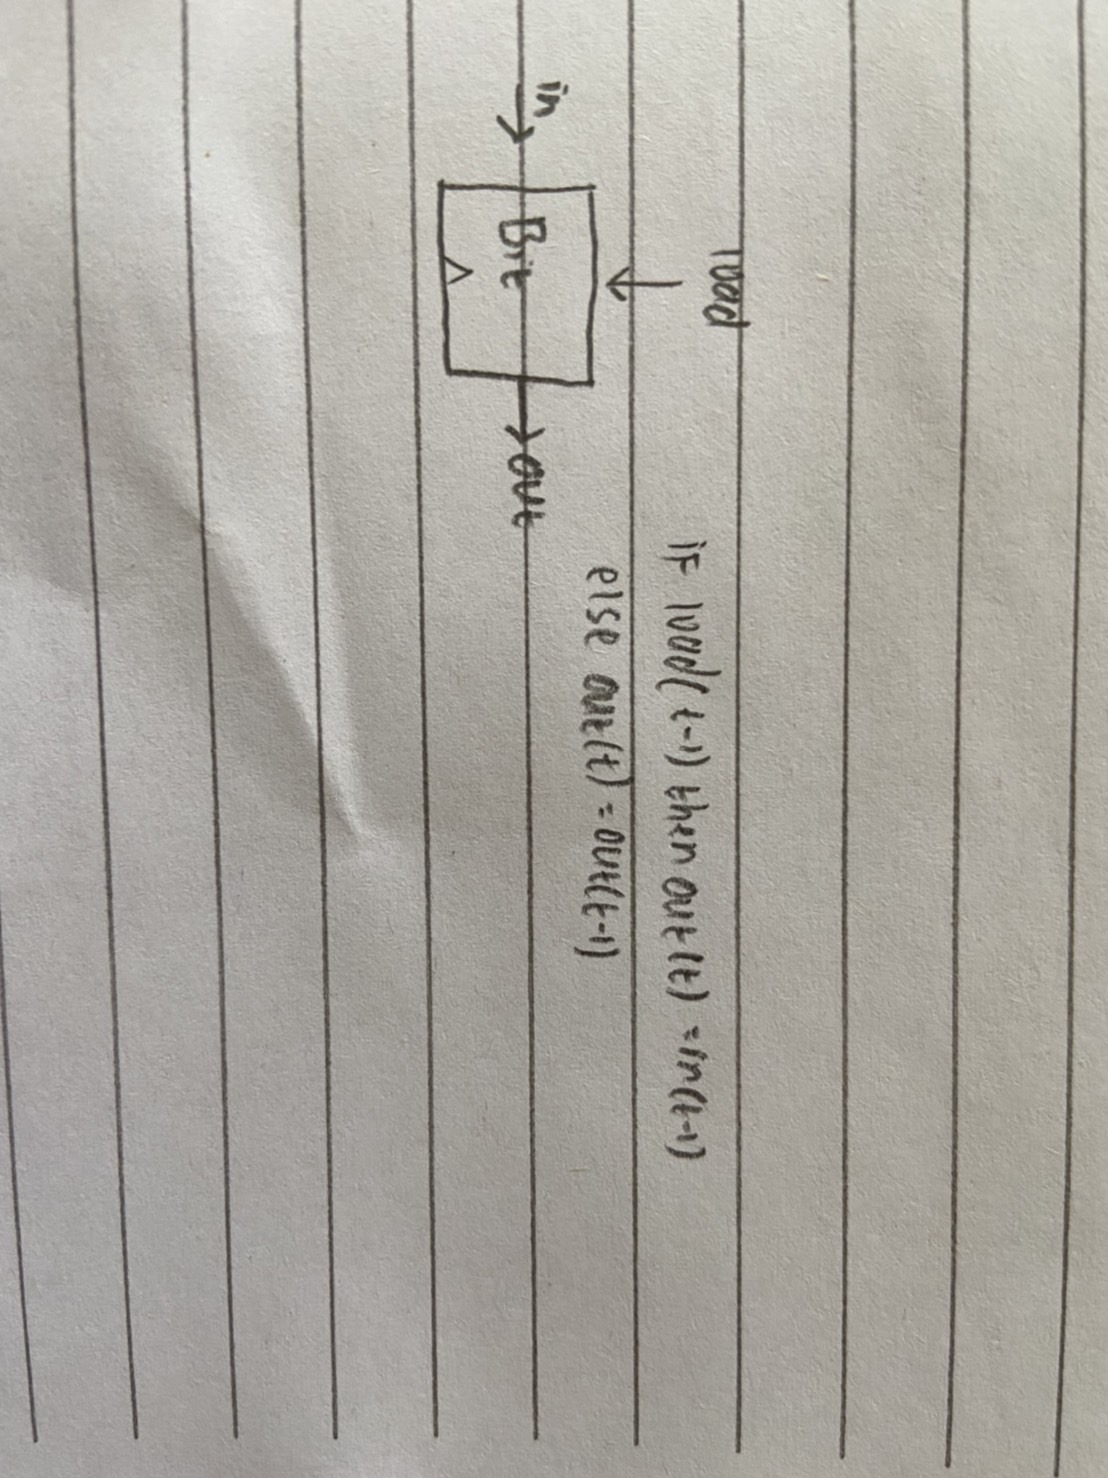 load
in
Bit
out
if load(t-1) then out(t) = in(t-1)
else out(t) = out(t-1)